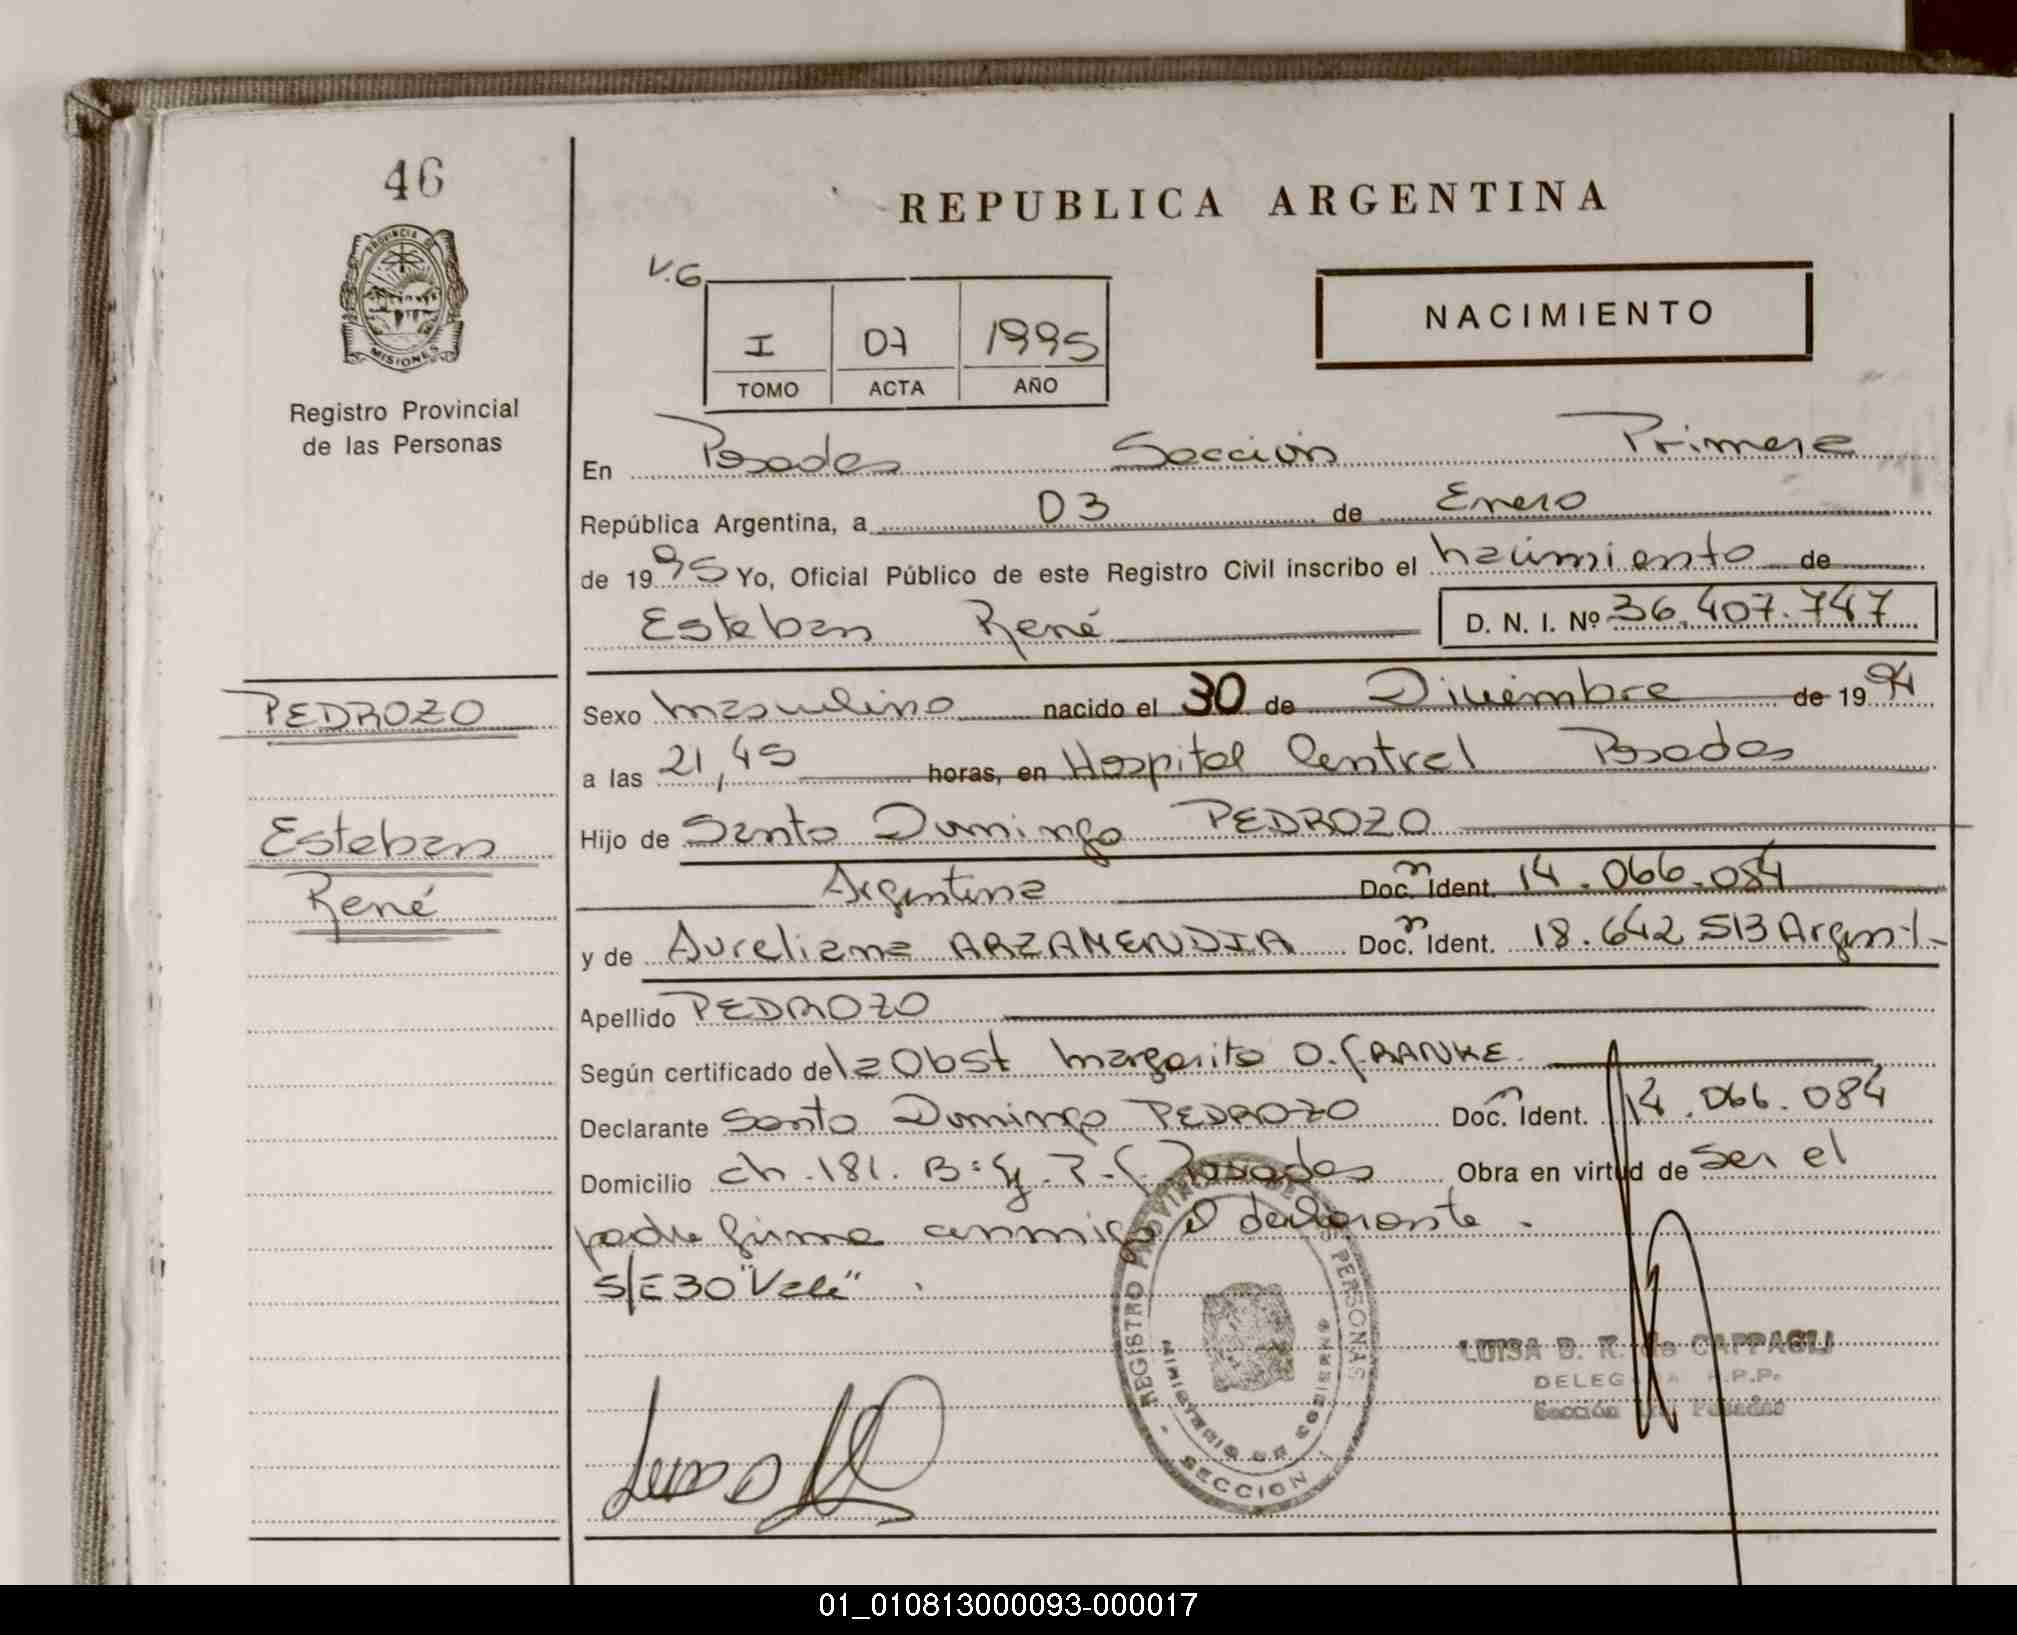 46
PROVINCIA DE
MISIONES
Registro Provincial
de las Personas
REPUBLICA ARGENTINA
V.G
I 07 1995
TOMO ACTA AÑO
NACIMIENTO
En Posadas Sección Primera
República Argentina, a 03 de Enero
de 1995 Yo, Oficial Público de este Registro Civil inscribo el nacimiento de
Esteban René D. N. I. Nº 36.407.747
PEDROZO
Sexo masculino nacido el 30 de Diciembre de 1994
a las 21,45 horas, en Hospital Central Posadas
Esteban
René
Hijo de Santo Domingo PEDROZO
Argentina Doc. Ident. 14.066.084
y de Aureliana ARZAMENDIA Doc. Ident. 18.642.513 Argent.
Apellido PEDROZO
Según certificado de la Obst Margarita O. FRANKE
Declarante Santo Domingo PEDROZO Doc. Ident. 14.066.084
Domicilio ch. 181. Posadas Obra en virtud de ser el
padre firma conmigo el declarante.
S/E 30 "Vale".
REGISTRO PROVINCIAL DE LAS PERSONAS
MINISTERIO DE GOBIERNO
SECCION
LUISA B. R. de CAPPAGLI
DELEGADA R.P.P.
Sección Posadas
01_010813000093-000017